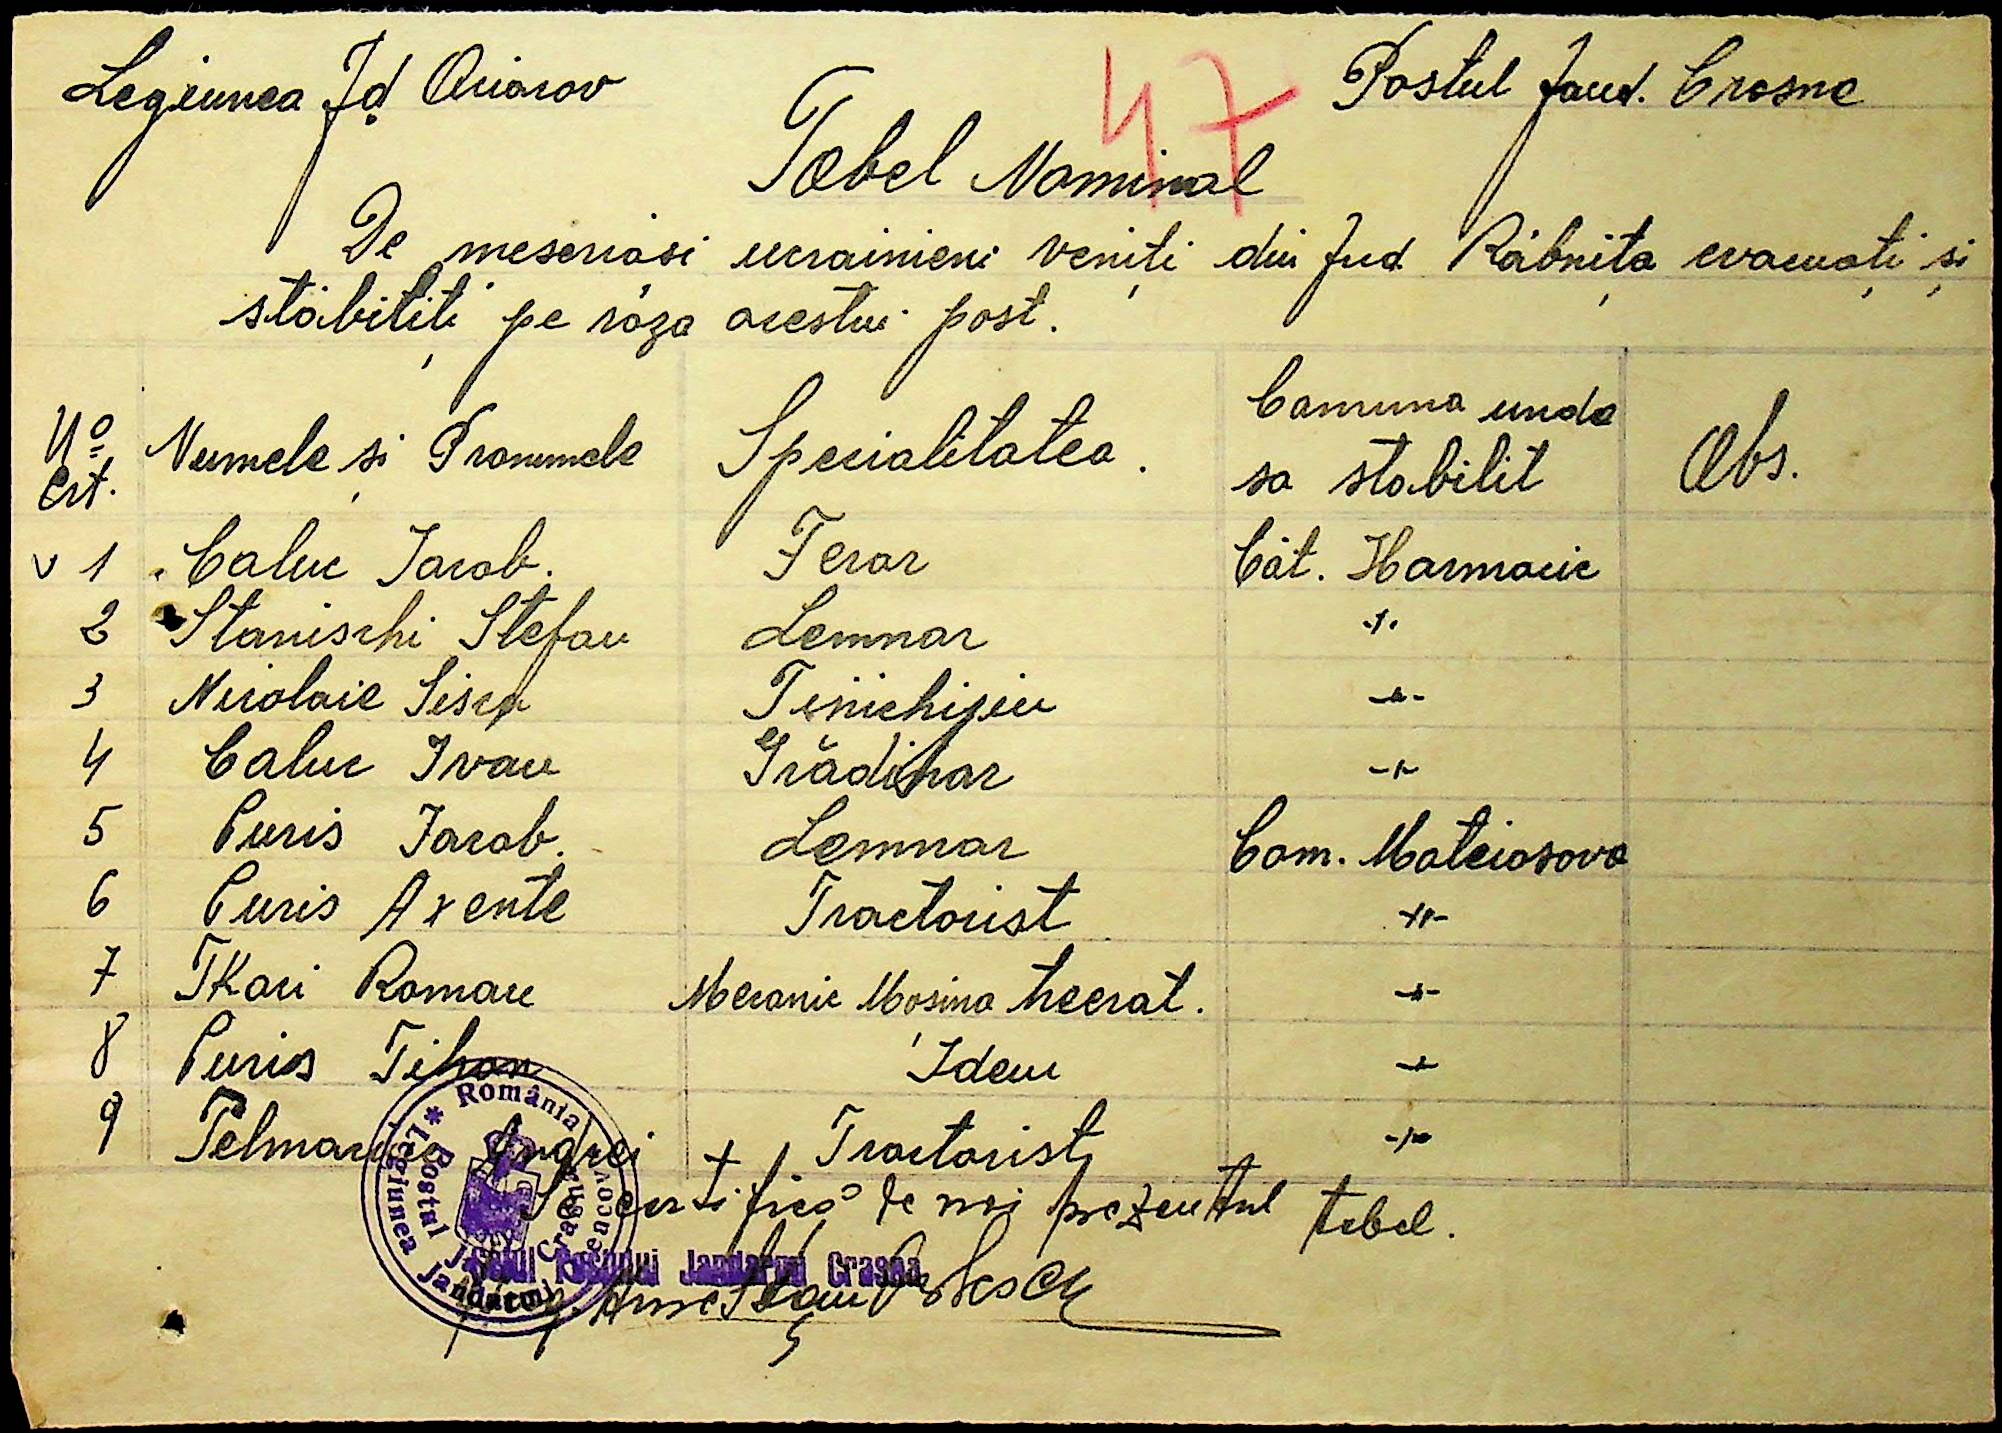 Legiunea Jd Ociacov
Postul Jand. Crasne
47
Tabel Nominal
De meseriasi ucrainieni veniți din Jud Râbnița evacuați și
stabiliți pe raza acestui post.
No crt. Numele și Pronumele Specialitatea. Comuna unde sa stabilit Obs.
v 1 Caluc Iacob. Ferar Căt. Harmacic
2 Stanischi Stefan Lemnar -"-
3 Nicolaie Sisca Tinichijiu -"-
4 Caluc Ivan Grădinar -"-
5 Puris Iacob. Lemnar Com. Mateiasova
6 Puris Axente Tractorist -"-
7 Tkaci Roman Mecanic Masina treerat. -"-
8 Puris Tihon Idem -"-
9 Andrei Tractorist -"-
Se certifică de noi prezentul tabel.
România
Legiunea Jandarmi
Postul
Seful Postului Jandarmi Crasna